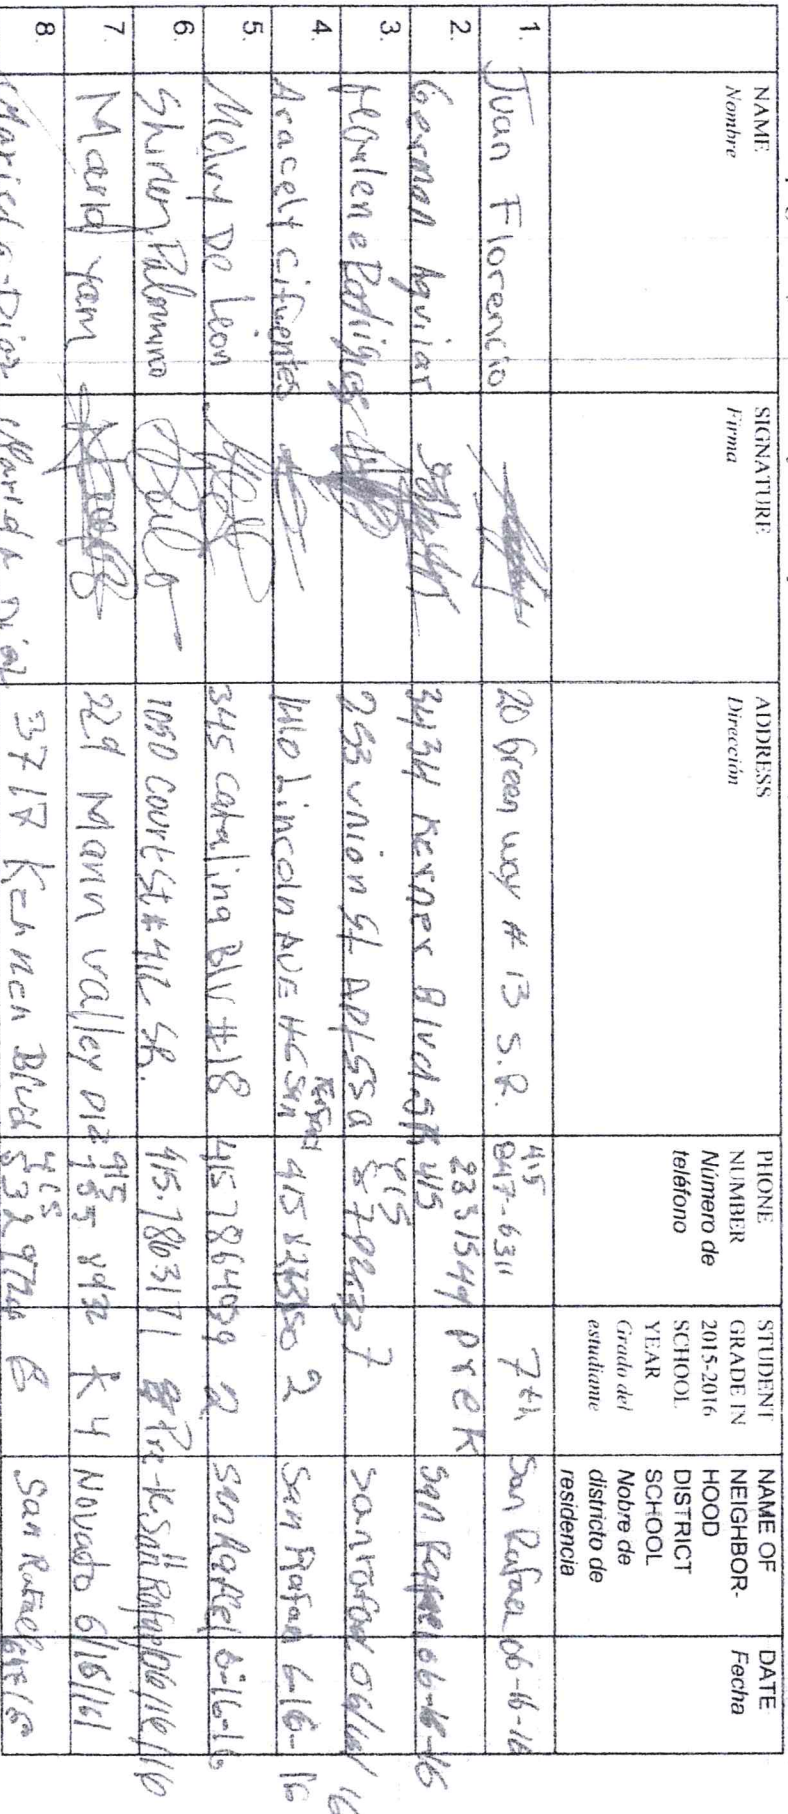 NAME
Nombre
SIGNATURE
Firma
ADDRESS
Dirección
PHONE
NUMBER
Número de
teléfono
STUDENT
GRADE IN
2015-2016
SCHOOL
YEAR
Grado del
estudiante
NAME OF
NEIGHBOR-
HOOD
DISTRICT
SCHOOL
Nobre de
districto de
residencia
DATE
Fecha
1. Juan Florencio 20 Green way # 13 S.R. 415 847-6311 7th San Rafael 06-16-16
2. German Aguilar 3434 Kerner Blvd. SR 415 2331549 PreK San Rafael 06-16-16
3. Marlene 253 union St Apt 55a 415 7 San rafael
4. Aracely Cifuentes 1410 Lincoln AVE San Rafael 415 2 San Rafael 6-16-16
5. Melvy De Leon 345 Catalina Blv #18 415 7864039 2 San Rafael 6-16-16
6. Shirley Palomino 1050 Court St # 412 SR. 415. 7863171 Pre-K San Rafael 06/16/16
7. Maria Yam 229 Marin Valley K 4 Novato 6/16/16
8. Diaz Diaz 3717 Blvd 415 San Rafael